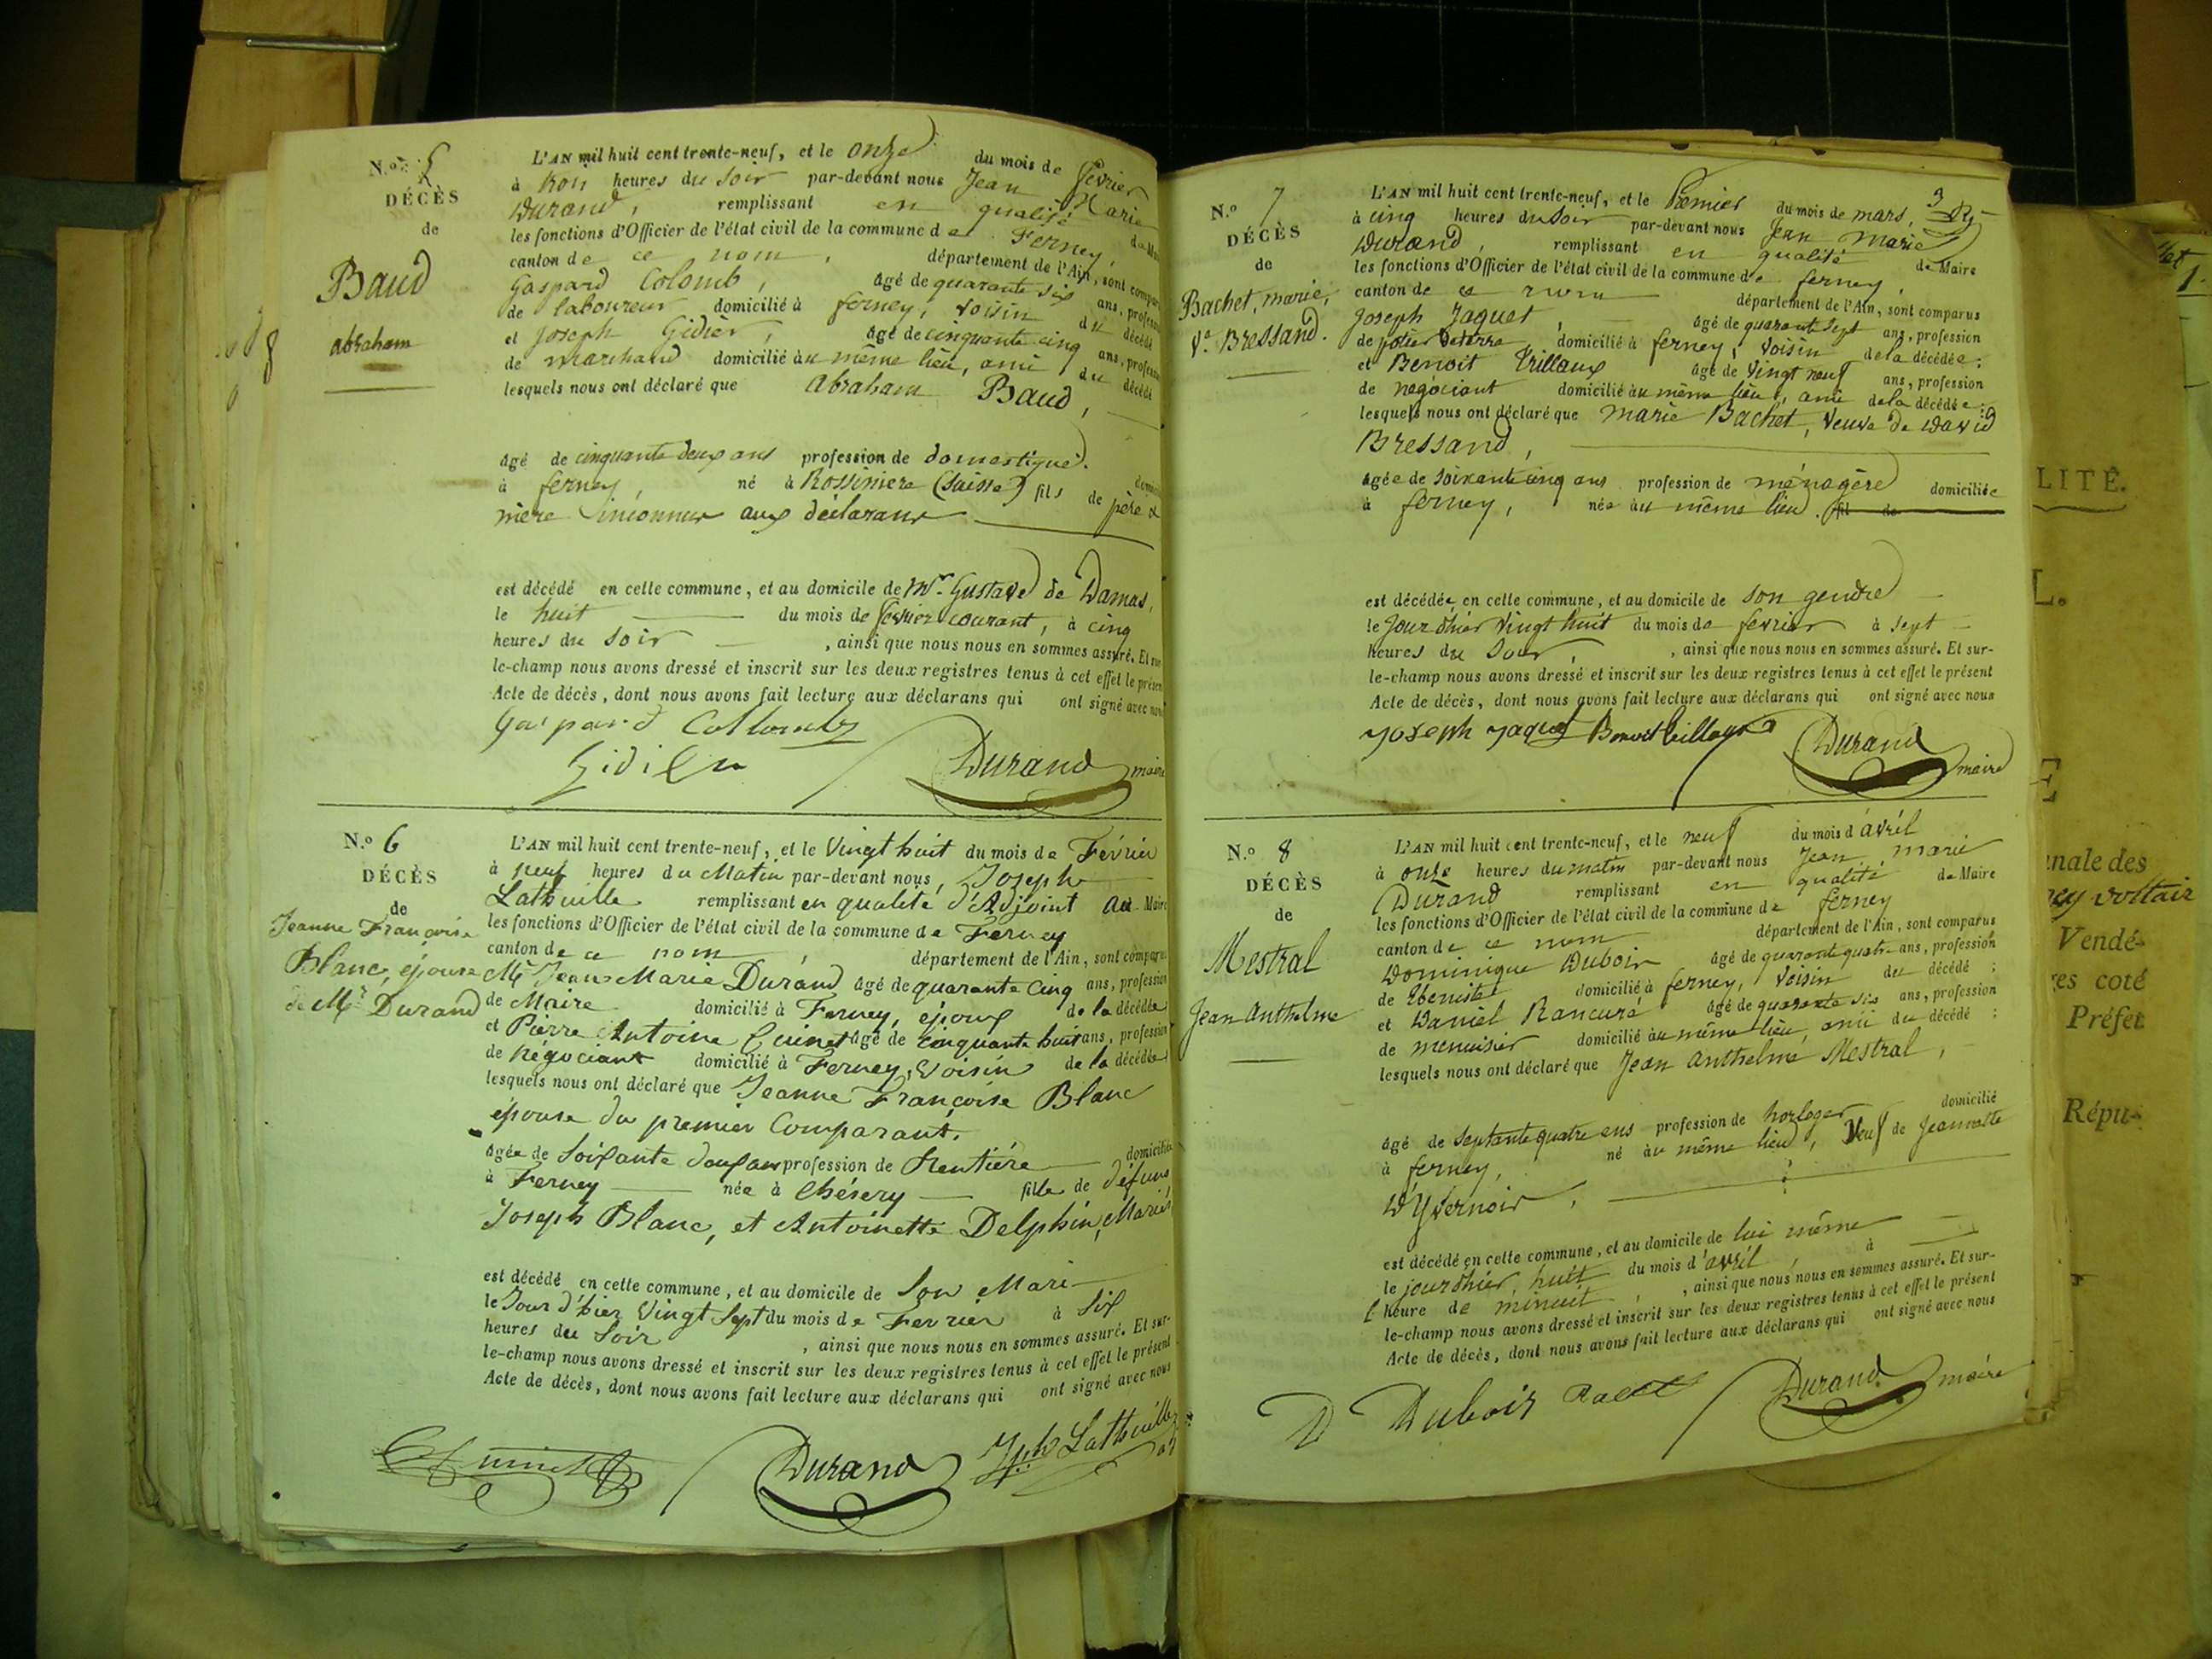 N.º 5
DÉCÈS
de
Baud
abraham
L'AN mil huit cent trente-neuf, et le onze du mois de Février
à trois heures du soir par-devant nous Jean Marie
Durand, remplissant en qualité de Maire
les fonctions d'Officier de l'état civil de la commune de Ferney,
canton de ce nom, département de l'Ain, sont comparus
Gaspard Colomb, âgé de quarante six ans, profession
de laboureur domicilié à ferney, voisin du décédé
et Joseph Gidier, âgé de cinquante cinq ans, profession
de marchand domicilié au même lieu, ami du décédé
lesquels nous ont déclaré que abraham Baud,
âgé de cinquante deux ans profession de domestique.
à ferney, né à Rossiniere (Suisse) fils de père &
mère inconnus aux déclarans
est décédé en cette commune, et au domicile de Mr. Gustave de Damas,
le huit du mois de fevrier courant, à cinq
heures du soir, ainsi que nous nous en sommes assuré. Et sur
le-champ nous avons dressé et inscrit sur les deux registres tenus à cet effet le présent
Acte de décès, dont nous avons fait lecture aux déclarans qui ont signé avec nous
Gaspard Collomb
Gidier Durand maire
N.º 6
DÉCÈS
de
Jeanne Françoise
Blanc, épouse
de Mr. Durand
L'AN mil huit cent trente-neuf, et le Vingt huit du mois de Février
à neuf heures du Matin par-devant nous, Joseph
Lathuille remplissant en qualité d'Adjoint au Maire
les fonctions d'Officier de l'état civil de la commune de Ferney
canton de ce nom département de l'Ain, sont comparus
Mr. Jean Marie Durand âgé de quarante Cinq ans, profession
de Maire domicilié à Ferney, époux de la décédée
et Pierre Antoine Guinet âgé de Cinquante huit ans, profession
de Négociant domicilié à Ferney, Voisin de la décédée
lesquels nous ont déclaré que Jeanne Françoise Blanc
épouse du premier Comparant,
âgée de Soixante douze ans profession de Rentière domiciliée
à Ferney née à Chésery fille de défunts
Joseph Blanc, et Antoinette Delphin, Mariés
est décédé en cette commune, et au domicile de Son Mari
le Jour d'hier Vingt Sept du mois de Fevrier à Six
heures du Soir, ainsi que nous nous en sommes assuré. Et sur-
le-champ nous avons dressé et inscrit sur les deux registres tenus à cet effet le présent
Acte de décès, dont nous avons fait lecture aux déclarans qui ont signé avec nous
Guinet Durand Jph Lathuille
3
N.º 7
DÉCÈS
de
Bachet, marie,
Ve. Bressand.
L'AN mil huit cent trente-neuf, et le Premier du mois de mars,
à cinq heures du Soir par-devant nous Jean Marie
Durand, remplissant en qualité de Maire
les fonctions d'Officier de l'état civil de la commune de ferney,
canton de ce nom département de l'Ain, sont comparus
Joseph Jaquet, âgé de quarante sept ans, profession
de potier de terre, domicilié à ferney, voisin de la décédée;
et Benoit Trillaux âgé de vingt neuf ans, profession
de negociant domicilié au même lieu, ami de la décédée;
lesquels nous ont déclaré que marie Bachet, veuve de David
Bressand,
âgée de soixante cinq ans profession de ménagère domiciliée
à ferney, née au même lieu. fil de
est décédée en cette commune, et au domicile de son gendre
le jour d'hier vingt huit du mois de fevrier à sept
heures du Soir, ainsi que nous nous en sommes assuré. Et sur-
le-champ nous avons dressé et inscrit sur les deux registres tenus à cet effet le présent
Acte de décès, dont nous avons fait lecture aux déclarans qui ont signé avec nous
Joseph Jaquet Benoit Durand maire
N.º 8
DÉCÈS
de
Mestral
Jean Anthelme
L'AN mil huit cent trente-neuf, et le neuf du mois d'avril
à onze heures du matin par-devant nous Jean marie
Durand remplissant en qualité de Maire
les fonctions d'Officier de l'état civil de la commune de ferney
canton de ce nom département de l'Ain, sont comparus
Dominique Dubois âgé de quarante quatre ans, profession
de Ebeniste domicilié à ferney, voisin du décédé;
et Daniel Rancuré âgé de quarante six ans, profession
de menuisier domicilié au même lieu, ami du décédé;
lesquels nous ont déclaré que Jean anthelme Mestral,
âgé de septante quatre ans profession de horloger domicilié
à ferney, né au même lieu, Veuf de Jeannette
D'Yvernois,
est décédé en cette commune, et au domicile de lui même
le jour d'hier, huit du mois d'avril, à
l'heure de minuit, ainsi que nous nous en sommes assuré. Et sur-
le-champ nous avons dressé et inscrit sur les deux registres tenus à cet effet le présent
Acte de décès, dont nous avons fait lecture aux déclarans qui ont signé avec nous
D Dubois Durand maire
LITÉ.
L.
E
nale des
ney voltair
Vendé-
res coté
Préfet
Répu-